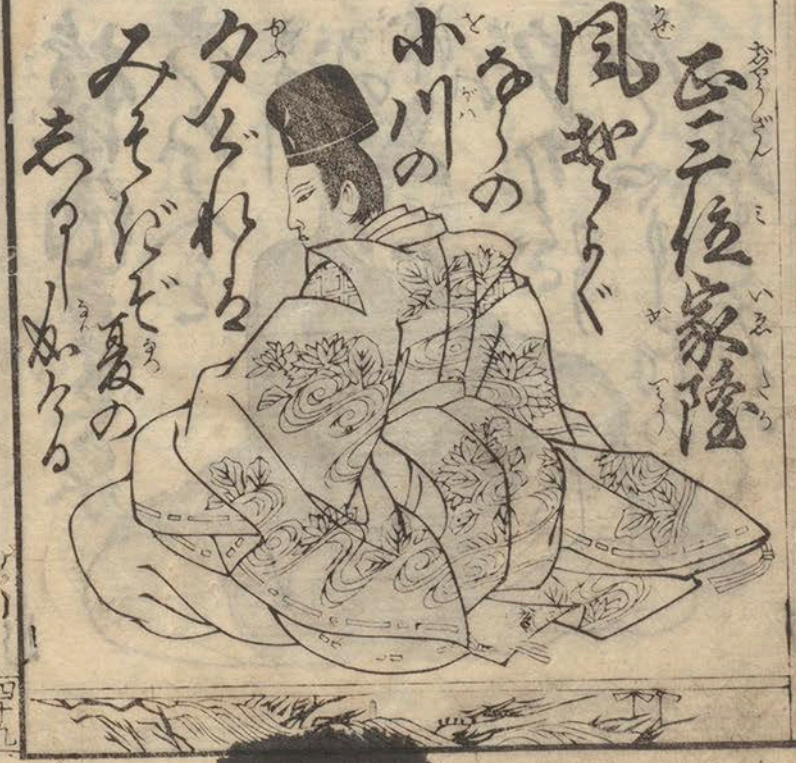 正三位家隆
風そよぐ
ならの
小川の
夕ぐれは
みそぎぞ夏の
しるし成ける
四十九